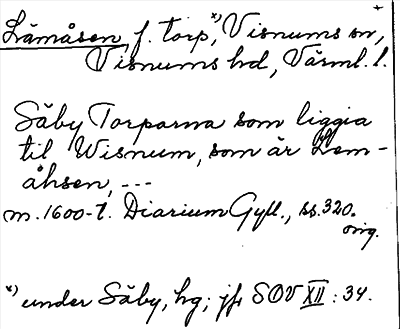 Lämåsen f. torp,*) Visnums sn,
Visnums hd, Värml. l.
Säby Torparna som liggia
til Wisnum, som är Lem-
åhsen, ---
m. 1600-t. Diarium Gyll., ss. 320.
orig.
*) under Säby, hg; jfr SOV XII: 34.